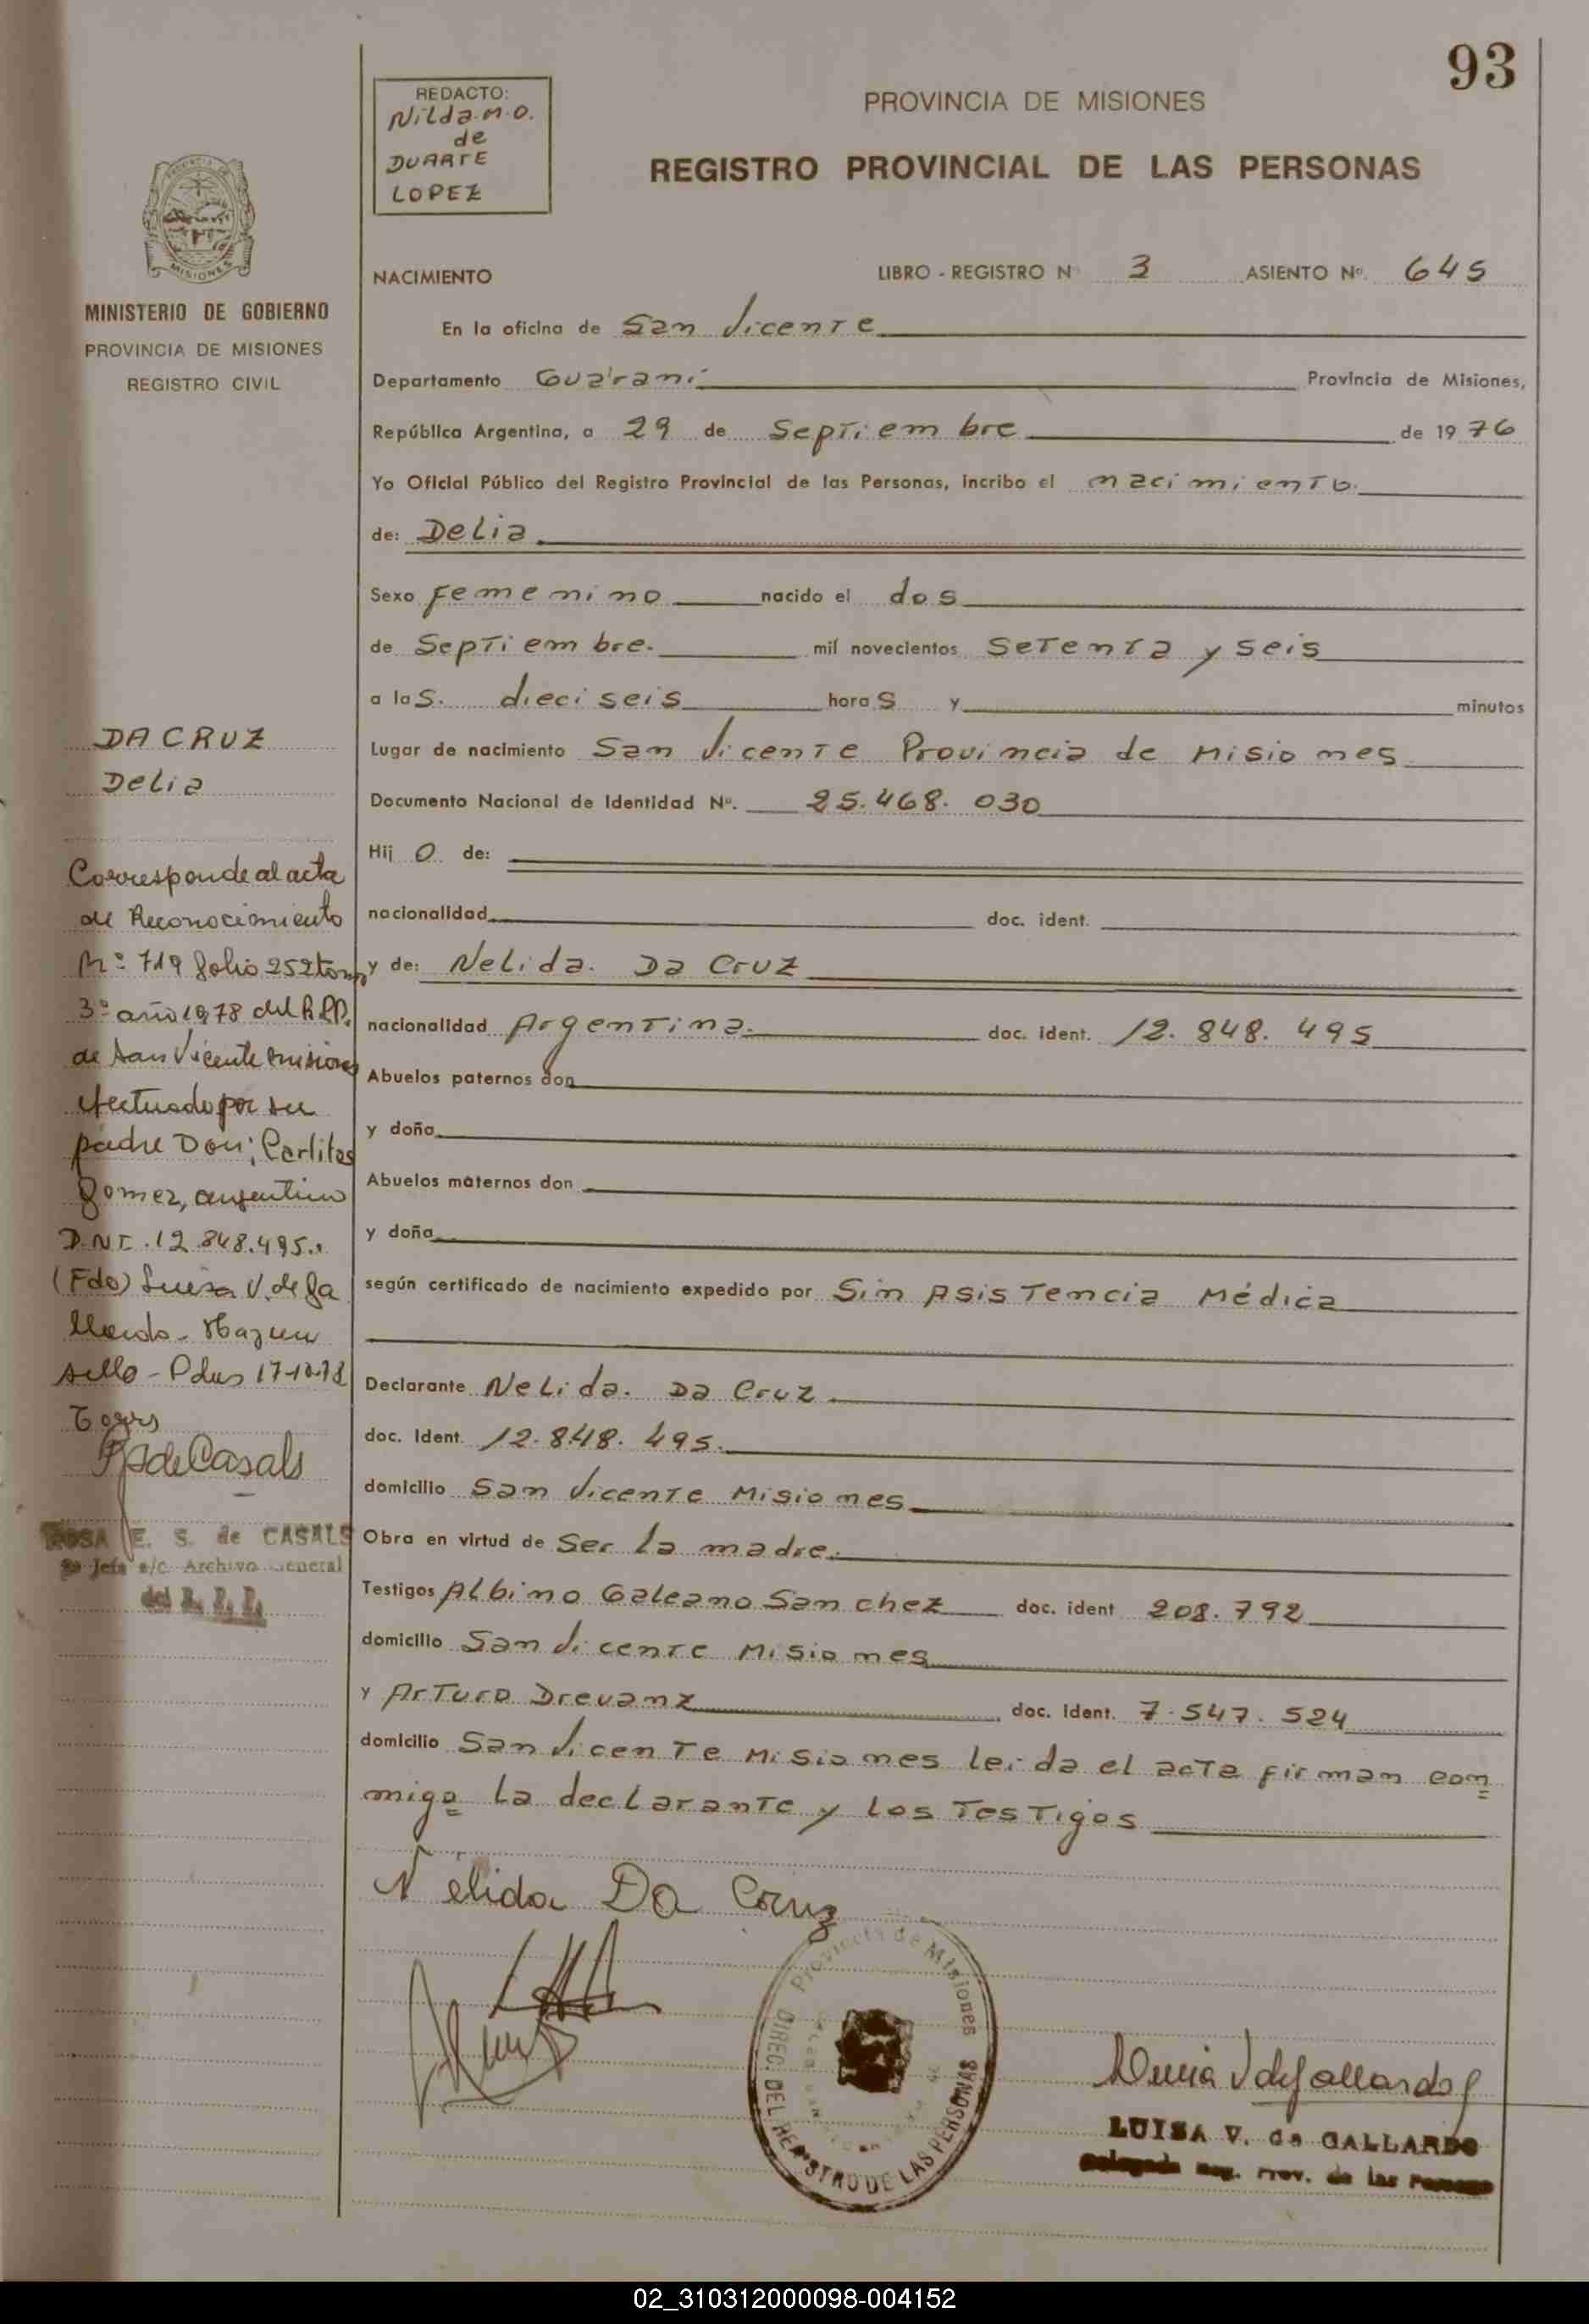 93
REDACTO:
Nilda.M.O.
de
DUARTE
LOPEZ
PROVINCIA DE MISIONES
REGISTRO PROVINCIAL DE LAS PERSONAS
MISIONES
MINISTERIO DE GOBIERNO
PROVINCIA DE MISIONES
REGISTRO CIVIL
NACIMIENTO LIBRO - REGISTRO N° 3 ASIENTO Nº. 645
En la oficina de San Vicente
Departamento Guarani Provincia de Misiones,
República Argentina, a 29 de Septiembre de 1976
Yo Oficial Público del Registro Provincial de las Personas, incribo el nacimiento.
de: Delia
Sexo femenino nacido el dos
de Septiembre. mil novecientos setenta y seis
a las. dieciseis horas y minutos
Lugar de nacimiento San Vicente Provincia de Misiones
Documento Nacional de Identidad Nº. 25.468.030
Hijo de:
nacionalidad doc. ident.
y de: Nelida. Da Cruz
nacionalidad Argentina. doc. ident. 12.848.495
Abuelos paternos don
y doña
Abuelos maternos don
y doña
según certificado de nacimiento expedido por Sin Asistencia Médica
Declarante Nelida. Da Cruz
doc. Ident. 12.848.495.
domicilio San Vicente Misiones
Obra en virtud de Ser la madre.
Testigos Albino Galeano Sanchez doc. ident 208.792
domicilio San Vicente Misiones
y Arturo Drevanz doc. Ident. 7.547.524
domicilio San Vicente Misiones leida el acta firman con=
migo la declarante y los Testigos
DA CRUZ
Delia
Corresponde al acta
de Reconocimiento
Nº 719 folio 252 tomo
3º año 1978 del R.P.P.
de San Vicente Misiones
efectuado por su
padre Don: Carlitos
Gomez, argentino
D.N.I. 12.848.495..
(Fdo) Luisa V. de Ga
llardo - Hay un
sello - Pdas 17-10-78
R S de Casals
ROSA E. S. de CASALS
Jefa a/c. Archivo General
del R. P. P.
Nélida Da Cruz
Provincia de Misiones
DIREC. DEL REGISTRO DE LAS PERSONAS
Luisa V de Gallardo
LUISA V. de GALLARDO
Delegada Reg. Prov. de las Personas
02_310312000098-004152